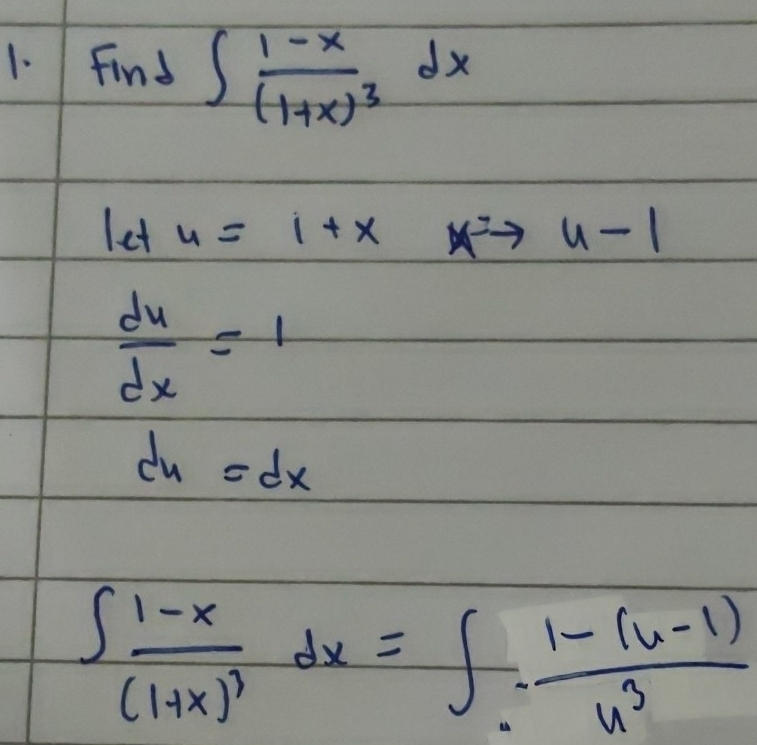 1. Find ∫ (1-x)/(1+x)³ dx
let u = 1+x x=→ u-1
du/dx = 1
du = dx
∫ (1-x)/(1+x)³ dx = ∫ (1-(u-1))/u³